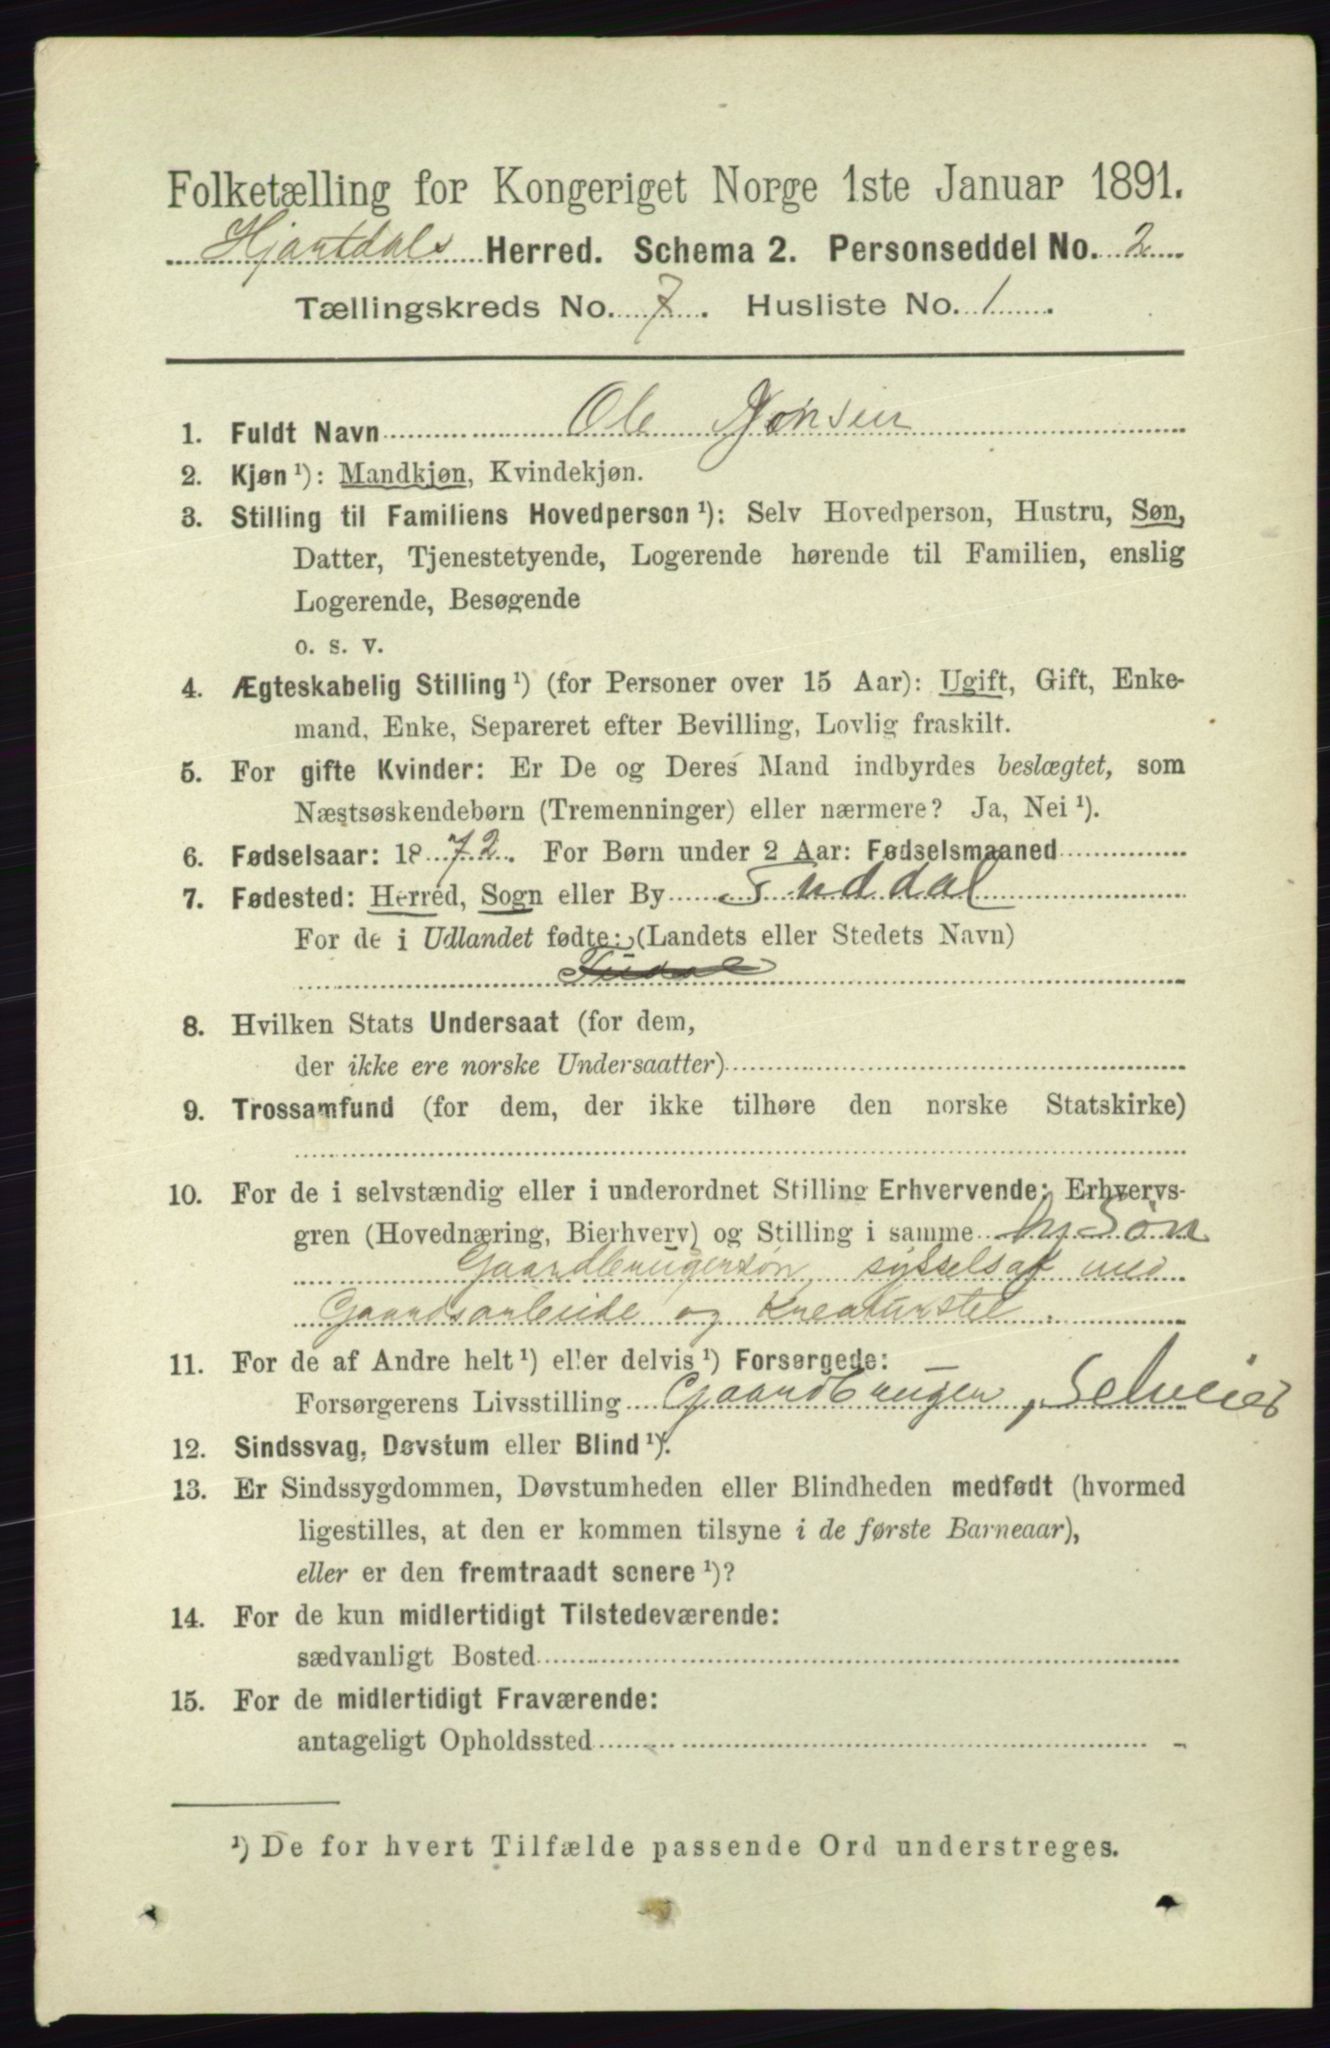 Folketælling for Kongeriget Norge 1ste Januar 1891.
Hjartdals Herred. Schema 2. Personseddel No. 2
Tællingskreds No. 7. Husliste No. 1.
1. Fuldt Navn Ole Jønsen
2. Kjøn ¹): Mandkjøn, Kvindekjøn.
3. Stilling til Familiens Hovedperson ¹): Selv Hovedperson, Hustru, Søn,
Datter, Tjenestetyende, Logerende hørende til Familien, enslig
Logerende, Besøgende
o. s. v.
4. Ægteskabelig Stilling ¹) (for Personer over 15 Aar): Ugift, Gift, Enke-
mand, Enke, Separeret efter Bevilling, Lovlig fraskilt.
5. For gifte Kvinder: Er De og Deres Mand indbyrdes beslægtet, som
Næstsøskendebørn (Tremenninger) eller nærmere? Ja, Nei ¹).
6. Fødselsaar: 1872. For Børn under 2 Aar: Fødselsmaaned
7. Fødested: Herred, Sogn eller By Tuddal
For de i Udlandet fødte: (Landets eller Stedets Navn)
8. Hvilken Stats Undersaat (for dem,
der ikke ere norske Undersaatter)
9. Trossamfund (for dem, der ikke tilhøre den norske Statskirke)
10. For de i selvstændig eller i underordnet Stilling Erhvervende: Erhvervs-
gren (Hovednæring, Bierhverv) og Stilling i samme Søn
Gaardbrugersøn, sysselsat med
Gaardsarbeide og Kreaturstel.
11. For de af Andre helt ¹) eller delvis ¹) Forsørgede: —
Forsørgerens Livsstilling Gaardbruger, Selveier
12. Sindssvag, Døvstum eller Blind ¹).
13. Er Sindssygdommen, Døvstumheden eller Blindheden medfødt (hvormed
ligestilles, at den er kommen tilsyne i de første Barneaar),
eller er den fremtraadt senere ¹)?
14. For de kun midlertidigt Tilstedeværende:
sædvanligt Bosted
15. For de midlertidigt Fraværende:
antageligt Opholdssted
¹) De for hvert Tilfælde passende Ord understreges.